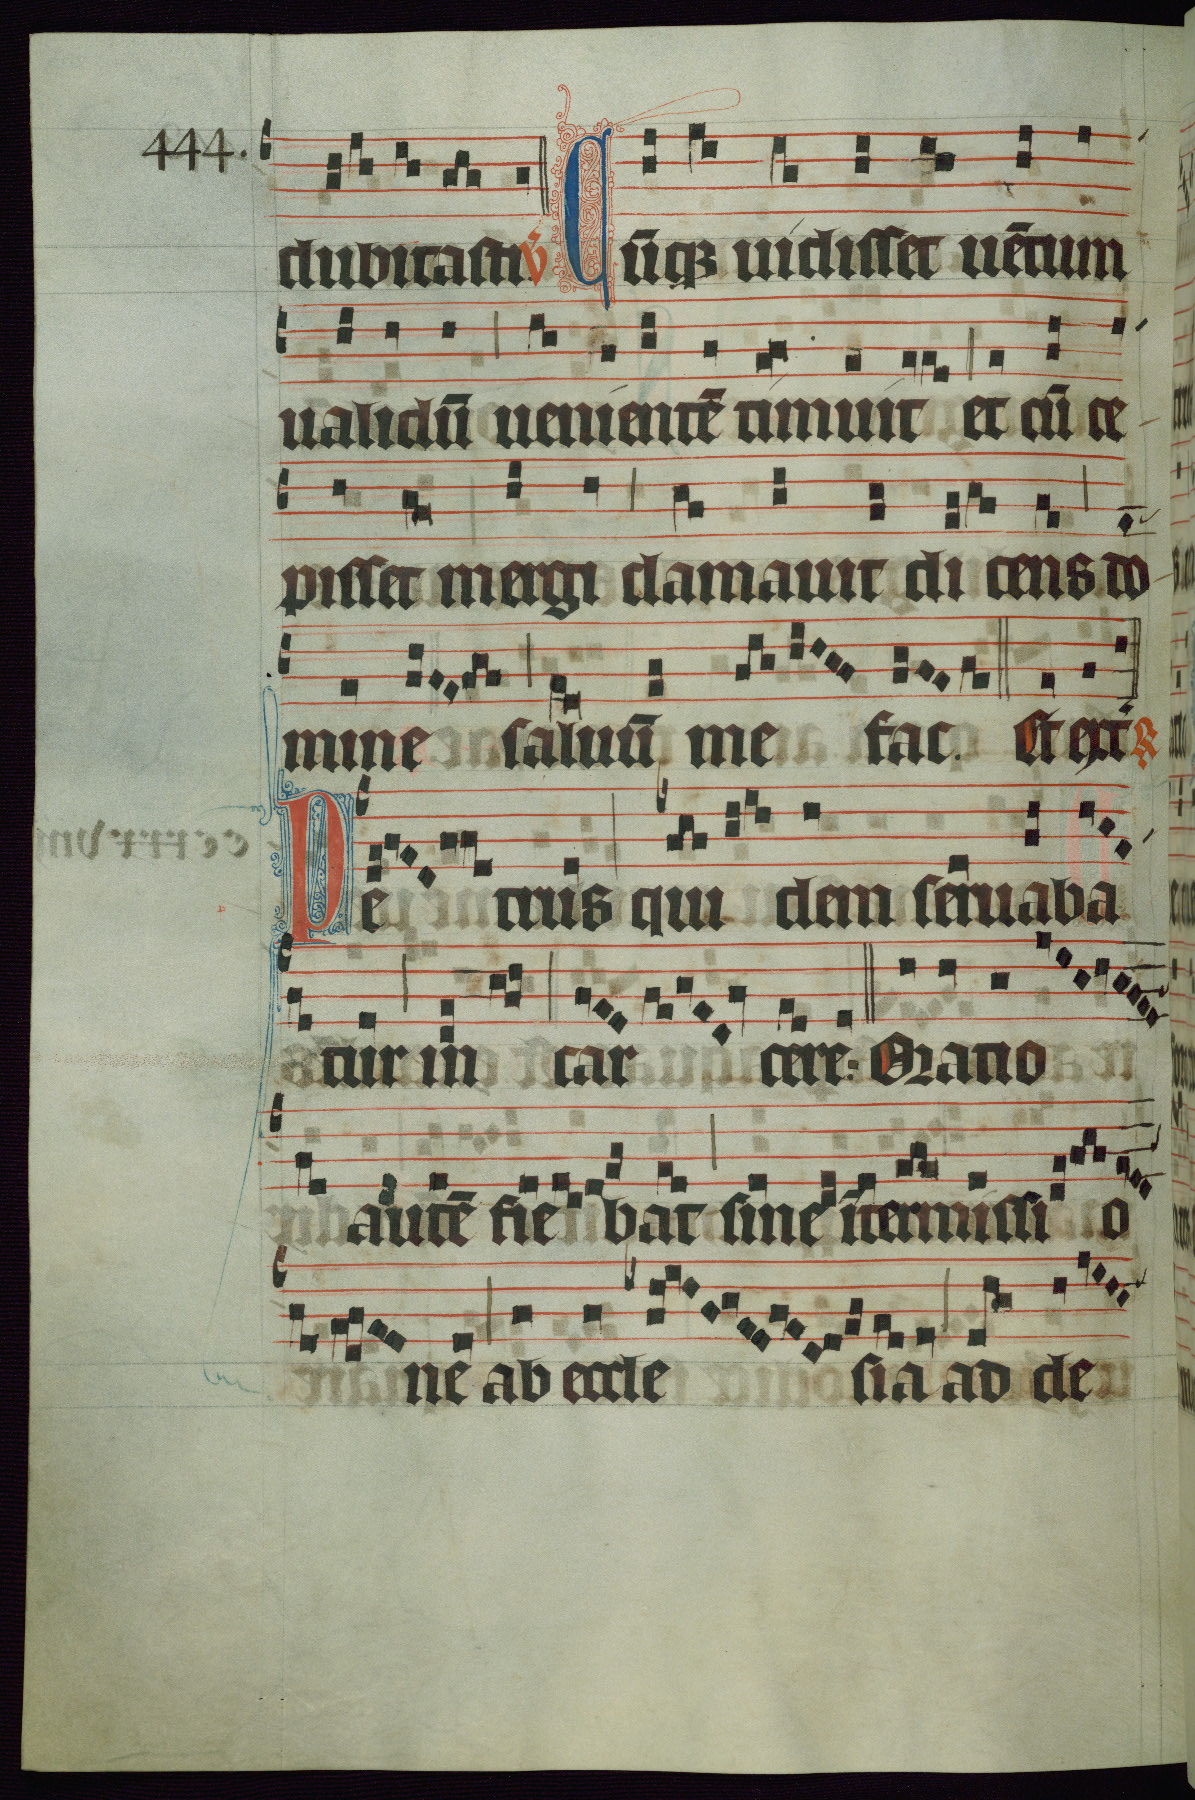 444.
dubitasti ℣ Cūqꝫ uidisset uētum
ualidū uenientē timuit et cū ce
pisset mergi clamauit di cens do
mine saluū me fac. Et ext ℟
Pe trus qui dem seruaba
tur in car cere: Oratio
autē fie bat sine ītermissi o
ne ab eccle sia ad de